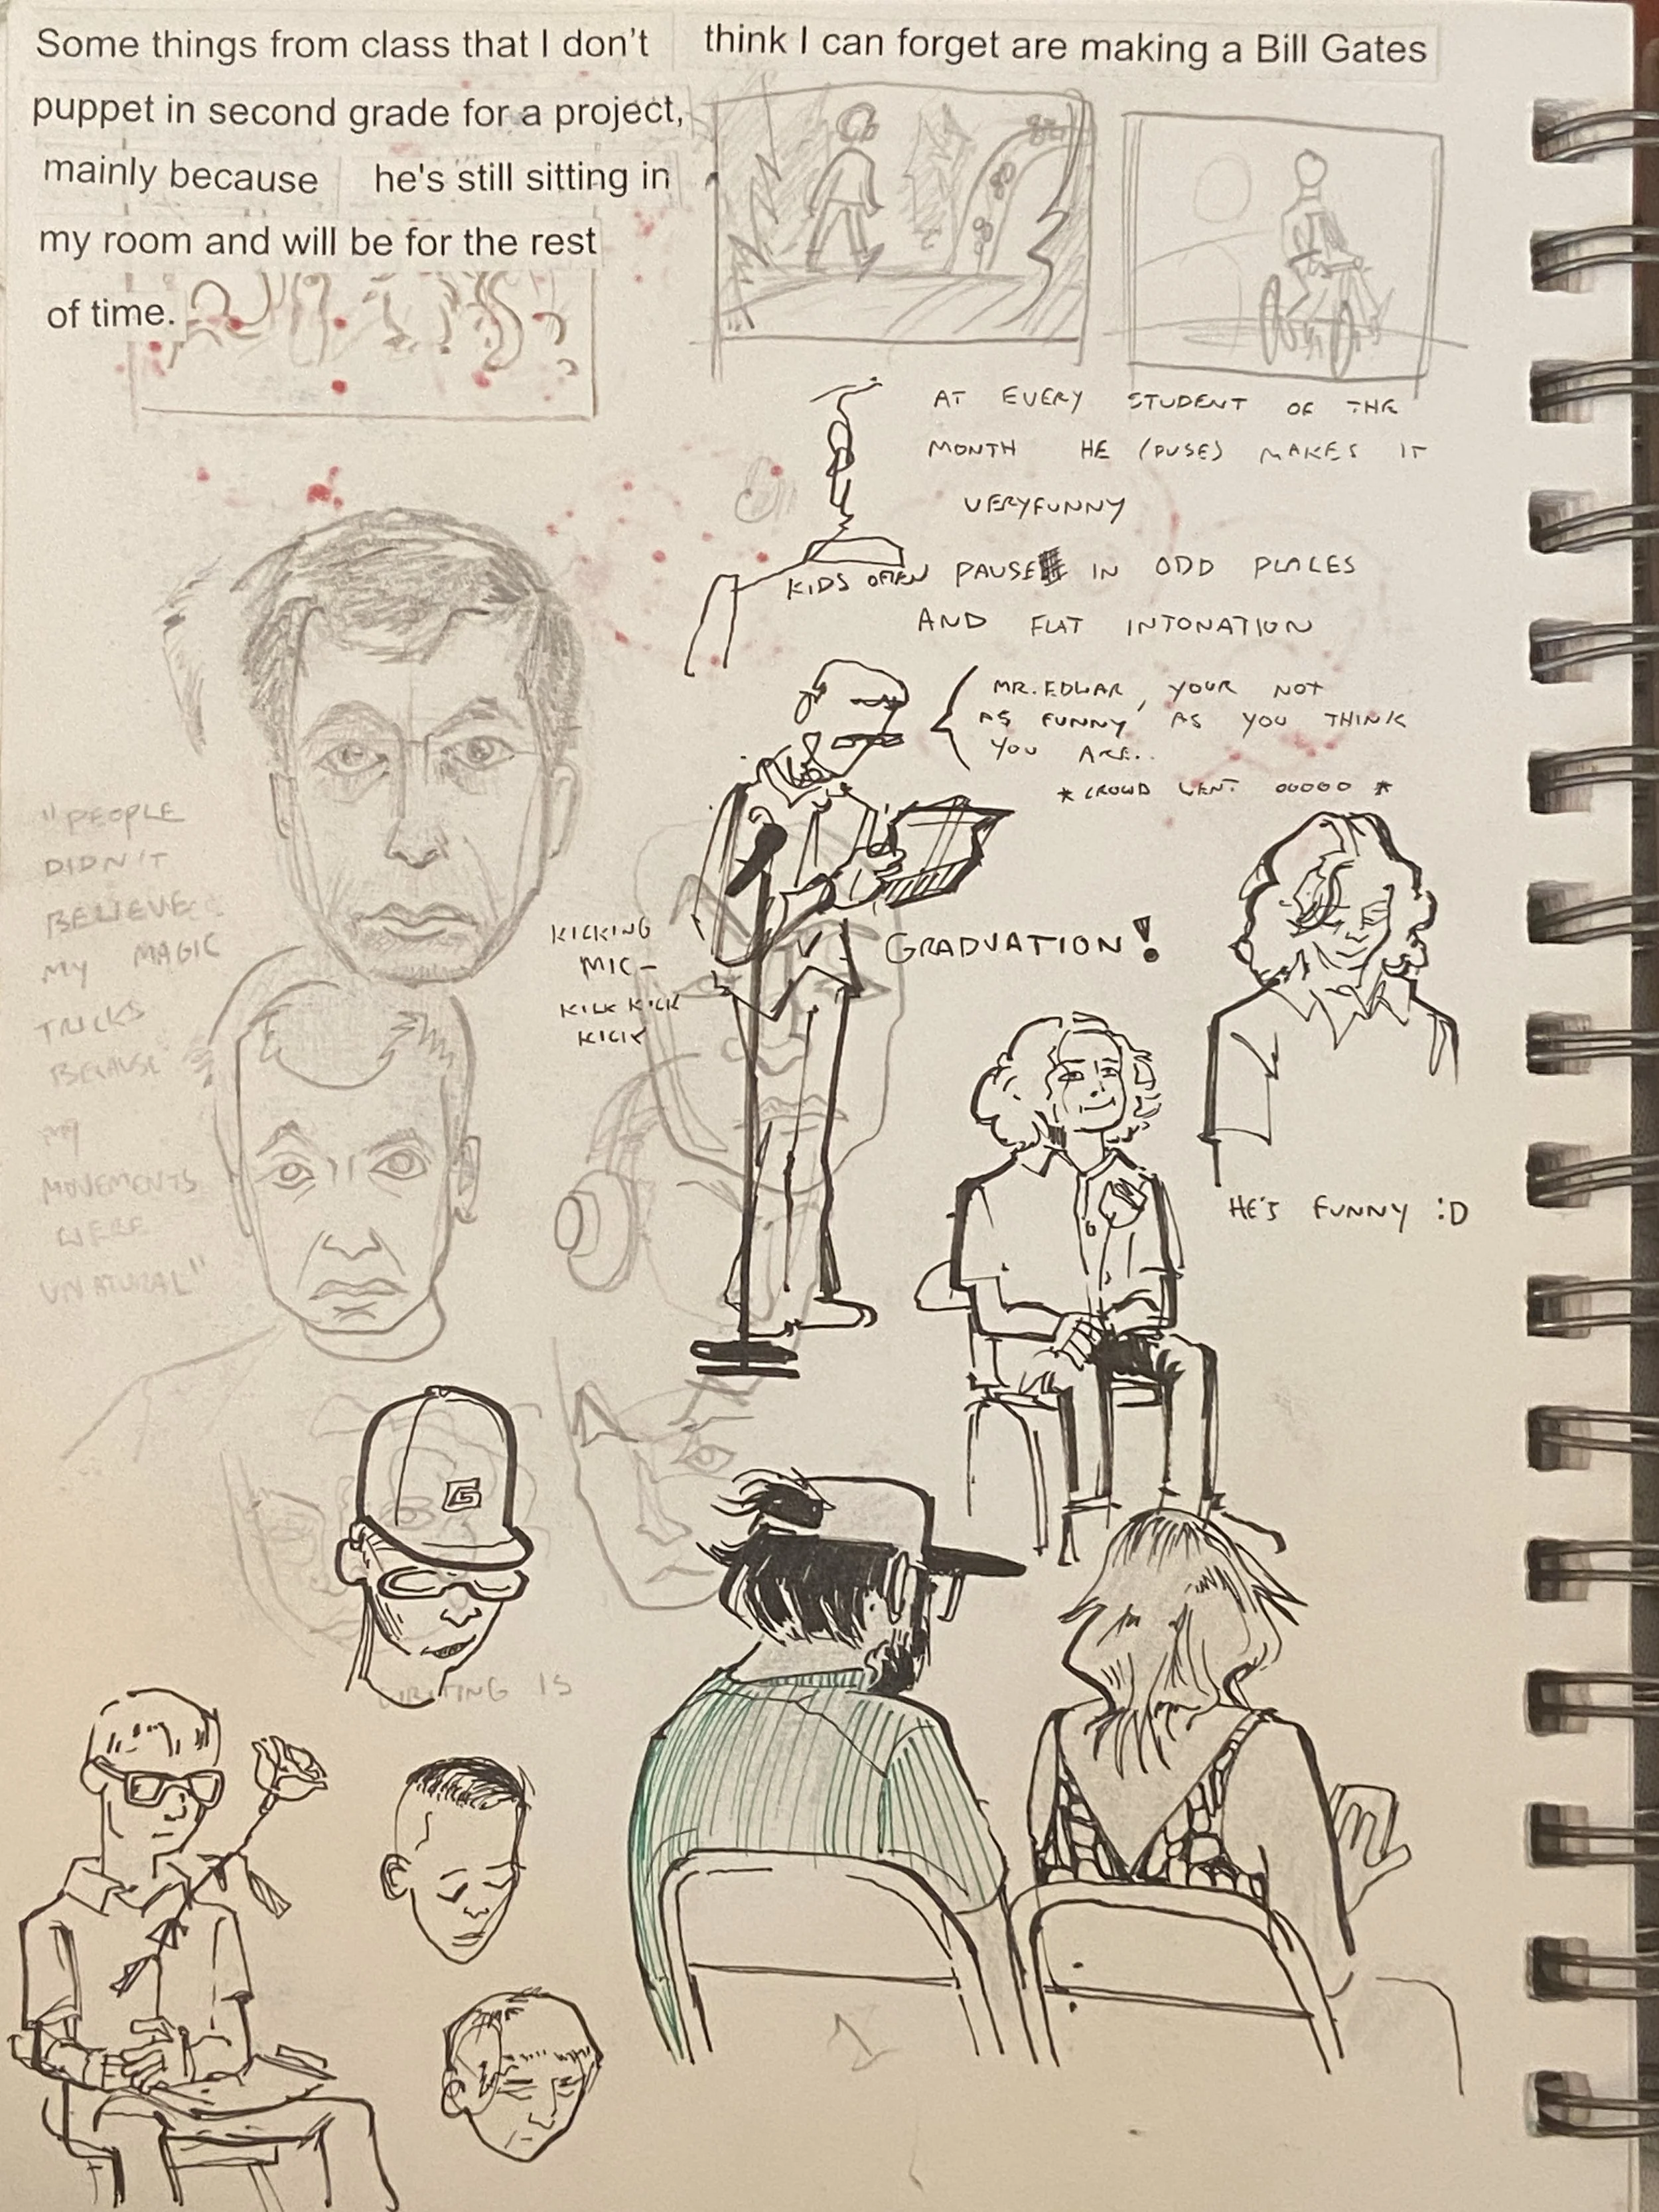 Some things from class that I don't think I can forget are making a Bill Gates
puppet in second grade for a project,
mainly because he's still sitting in
my room and will be for the rest
of time.
AT EVERY STUDENT OF THE
MONTH HE (DUSE) MAKES IT
VERYFUNNY
KIDS OFTEN PAUSE IN ODD PLACES
AND FLAT INTONATION
MR. EDWAR, YOUR NOT
AS FUNNY AS YOU THINK
YOU ARE..
*CROWD WENT OOOOO*
"PEOPLE
DIDN'T
BELIEVE
MY MAGIC
TRICKS
BECAUSE
MY
MOVEMENTS
WERE
UNATURAL"
KICKING
MIC-
KICK KICK
KICK
GRADUATION!
HE'S FUNNY :D
G
WRITING IS